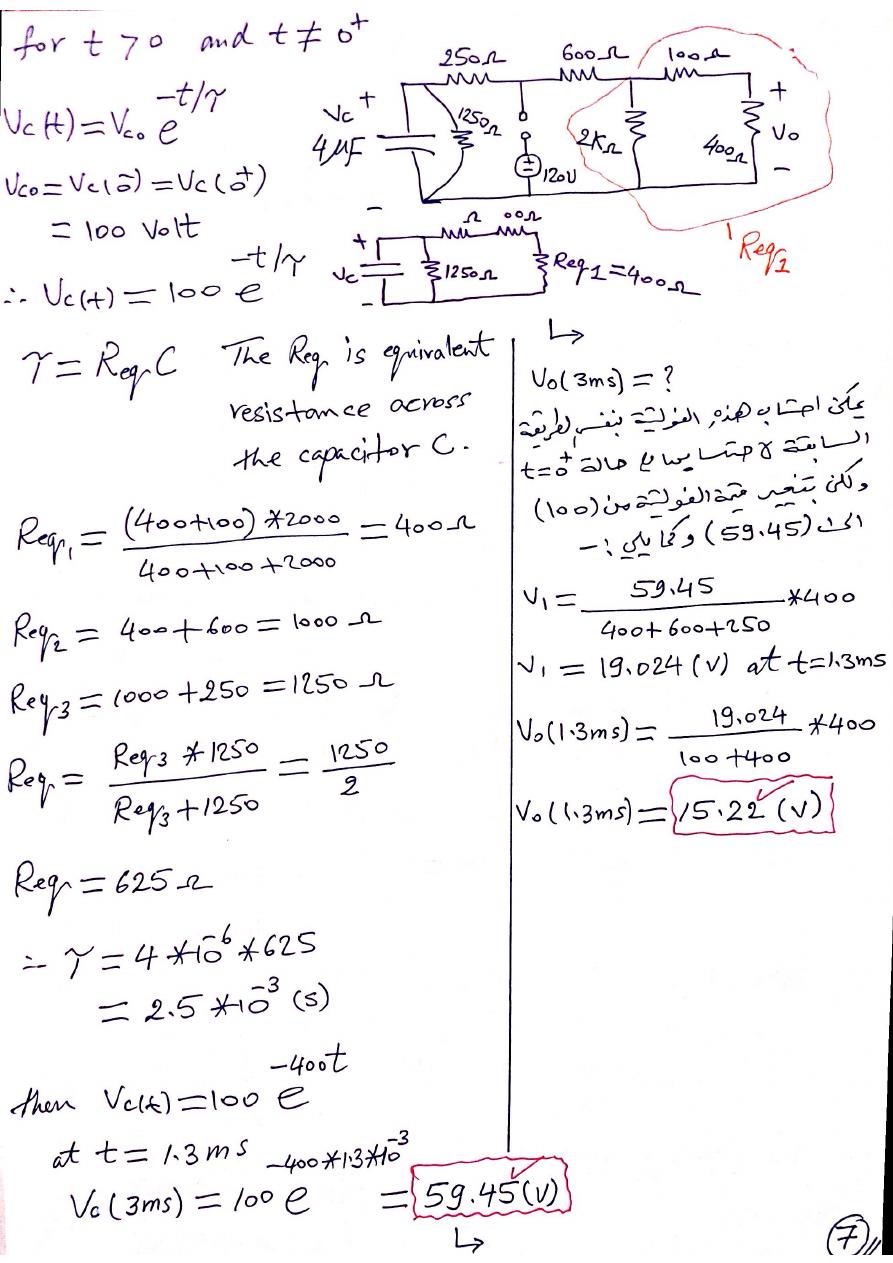 for t > 0 and t ≠ 0⁺
Vc(t) = Vco e^(-t/τ)
Vco = Vc(0⁻) = Vc(0⁺)
= 100 Volt
∴ Vc(t) = 100 e^(-t/τ)
250Ω 600Ω 100Ω
Vc + 4μF - 1250Ω 120V 2KΩ 400Ω + Vo -
Req1
Ω 00Ω
+ Vc - 1250Ω Req1=400Ω
τ = Req C The Req is equivalent
resistance across
the capacitor C.
Req1 = (400+100)*2000 / 400+100+2000 = 400Ω
Req2 = 400+600 = 1000 Ω
Req3 = 1000+250 = 1250 Ω
Req = Req3 * 1250 / Req3 + 1250 = 1250 / 2
Req = 625 Ω
∴ τ = 4*10⁻⁶*625
= 2.5*10⁻³ (s)
then Vc(t) = 100 e^(-400t)
at t = 1.3ms
Vc(3ms) = 100 e^(-400*1.3*10⁻³) = 59.45(V)
↳
↳
Vo(3ms) = ?
يمكن احتساب هذه الفولتية بنفس الطريقة
السابقة لاحتسابها حالة t=0⁺
ولكن بتغيير قيمة الفولتية من (100)
الى (59.45) وكما يلي :-
V1 = 59.45 / 400+600+250 *400
V1 = 19.024 (V) at t=1.3ms
Vo(1.3ms) = 19.024 / 100+400 *400
Vo(1.3ms) = 15.22 (V)
7